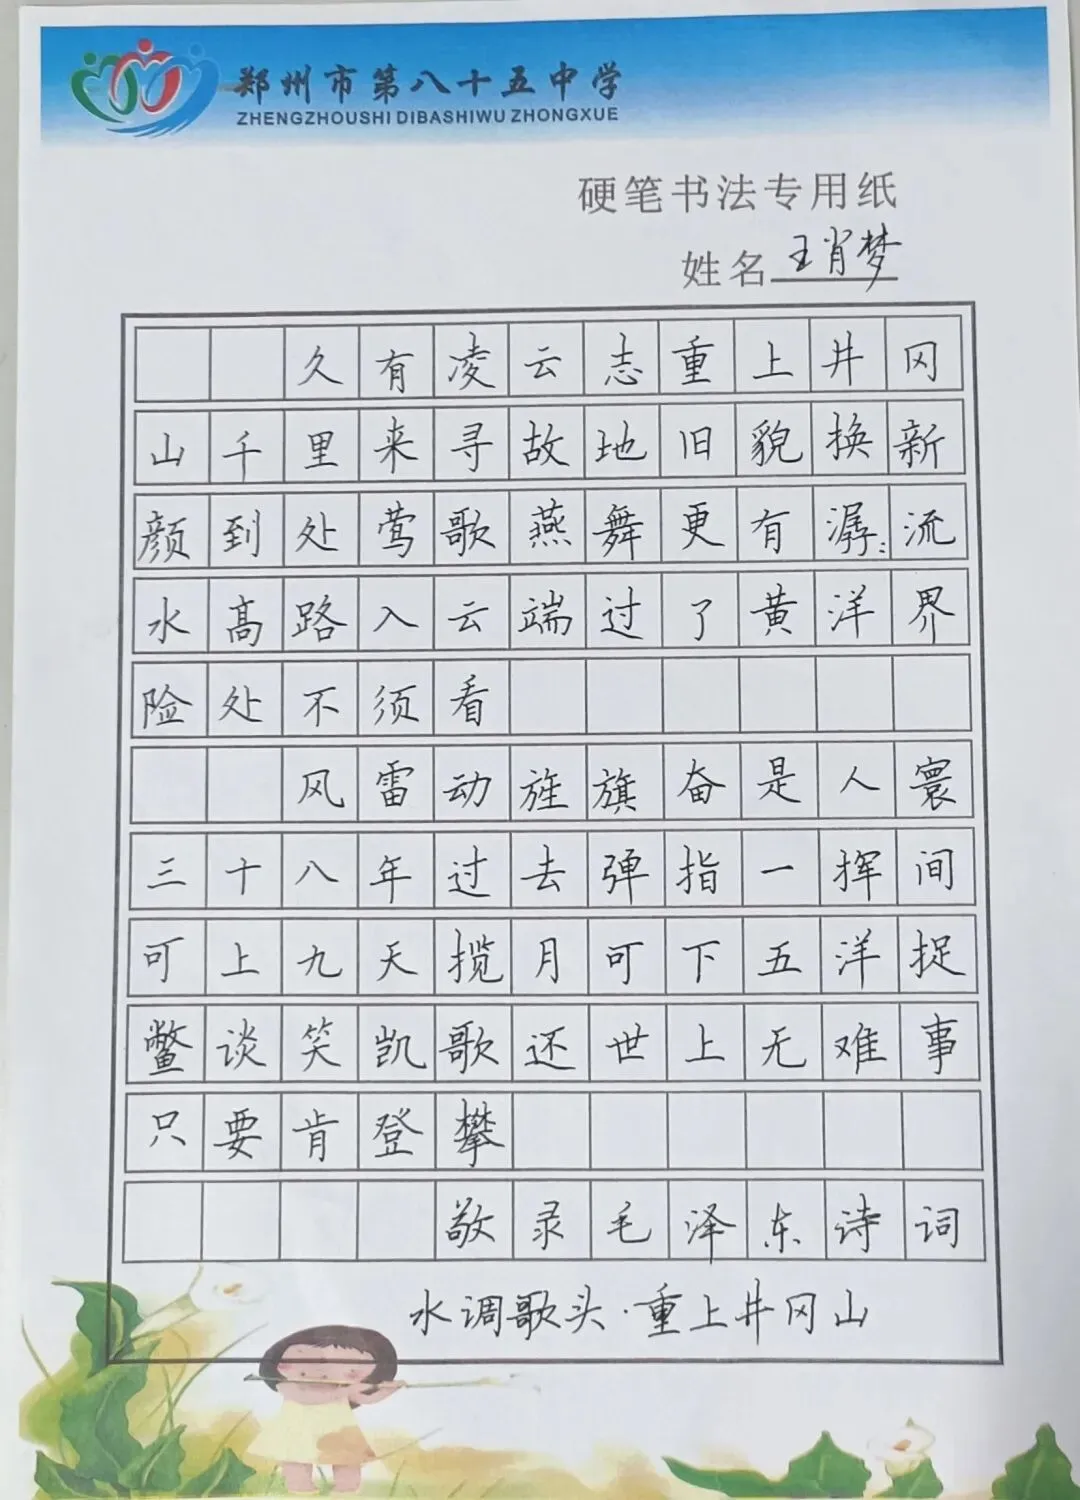 郑州市第八十五中学
ZHENGZHOUSHI DIBASHIWU ZHONGXUE
硬笔书法专用纸
姓名 王肖梦
久有凌云志重上井冈
山千里来寻故地旧貌换新
颜到处莺歌燕舞更有潺:流
水高路入云端过了黄洋界
险处不须看
风雷动旌旗奋是人寰
三十八年过去弹指一挥间
可上九天揽月可下五洋捉
鳖谈笑凯歌还世上无难事
只要肯登攀
敬录毛泽东诗词
水调歌头·重上井冈山